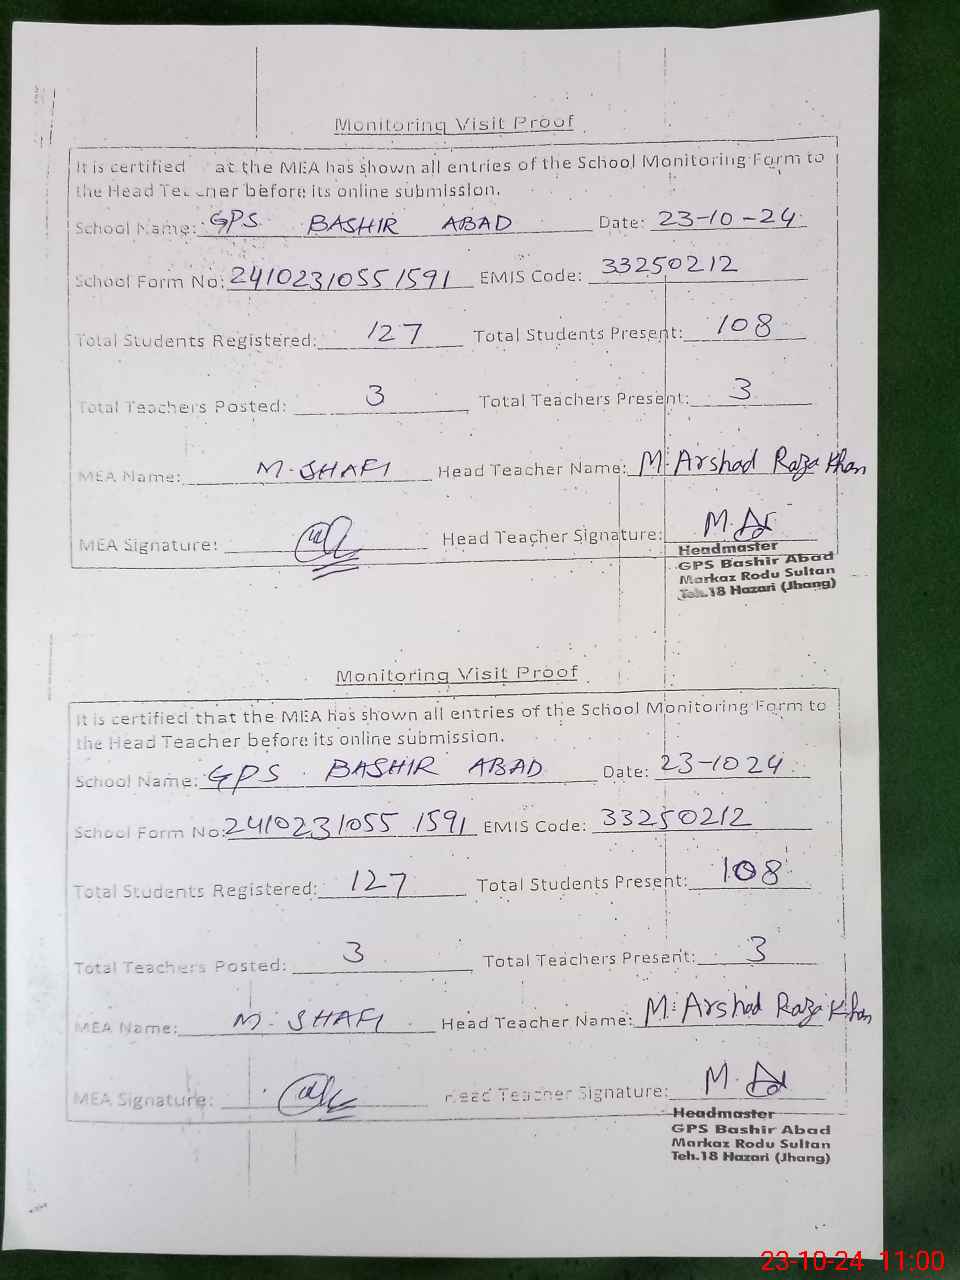 Monitoring Visit Proof
It is certified at the MEA has shown all entries of the School Monitoring Form to
the Head Teacher before its online submission.
School Name: GPS BASHIR ABAD Date: 23-10-24
School Form No: 24102310551591 EMIS Code: 33250212
Total Students Registered: 127 Total Students Present: 108
Total Teachers Posted: 3 Total Teachers Present: 3
MEA Name: M. SHAFI Head Teacher Name: M. Arshad Raza Khan
MEA Signature: Head Teacher Signature: M. Ar
Headmaster
GPS Bashir Abad
Markaz Rodu Sultan
Teh.18 Hazari (Jhang)
Monitoring Visit Proof
It is certified that the MEA has shown all entries of the School Monitoring Form to
the Head Teacher before its online submission.
School Name: GPS. BASHIR ABAD Date: 23-1024
School Form No: 2410231055 1591 EMIS Code: 33250212
Total Students Registered: 127 Total Students Present: 108
Total Teachers Posted: 3 Total Teachers Present: 3
MEA Name: M. SHAFI Head Teacher Name: M. Arshad Raza Khan
MEA Signature: Head Teacher Signature: M. Ar
Headmaster
GPS Bashir Abad
Markaz Rodu Sultan
Teh.18 Hazari (Jhang)
23-10-24 11:00